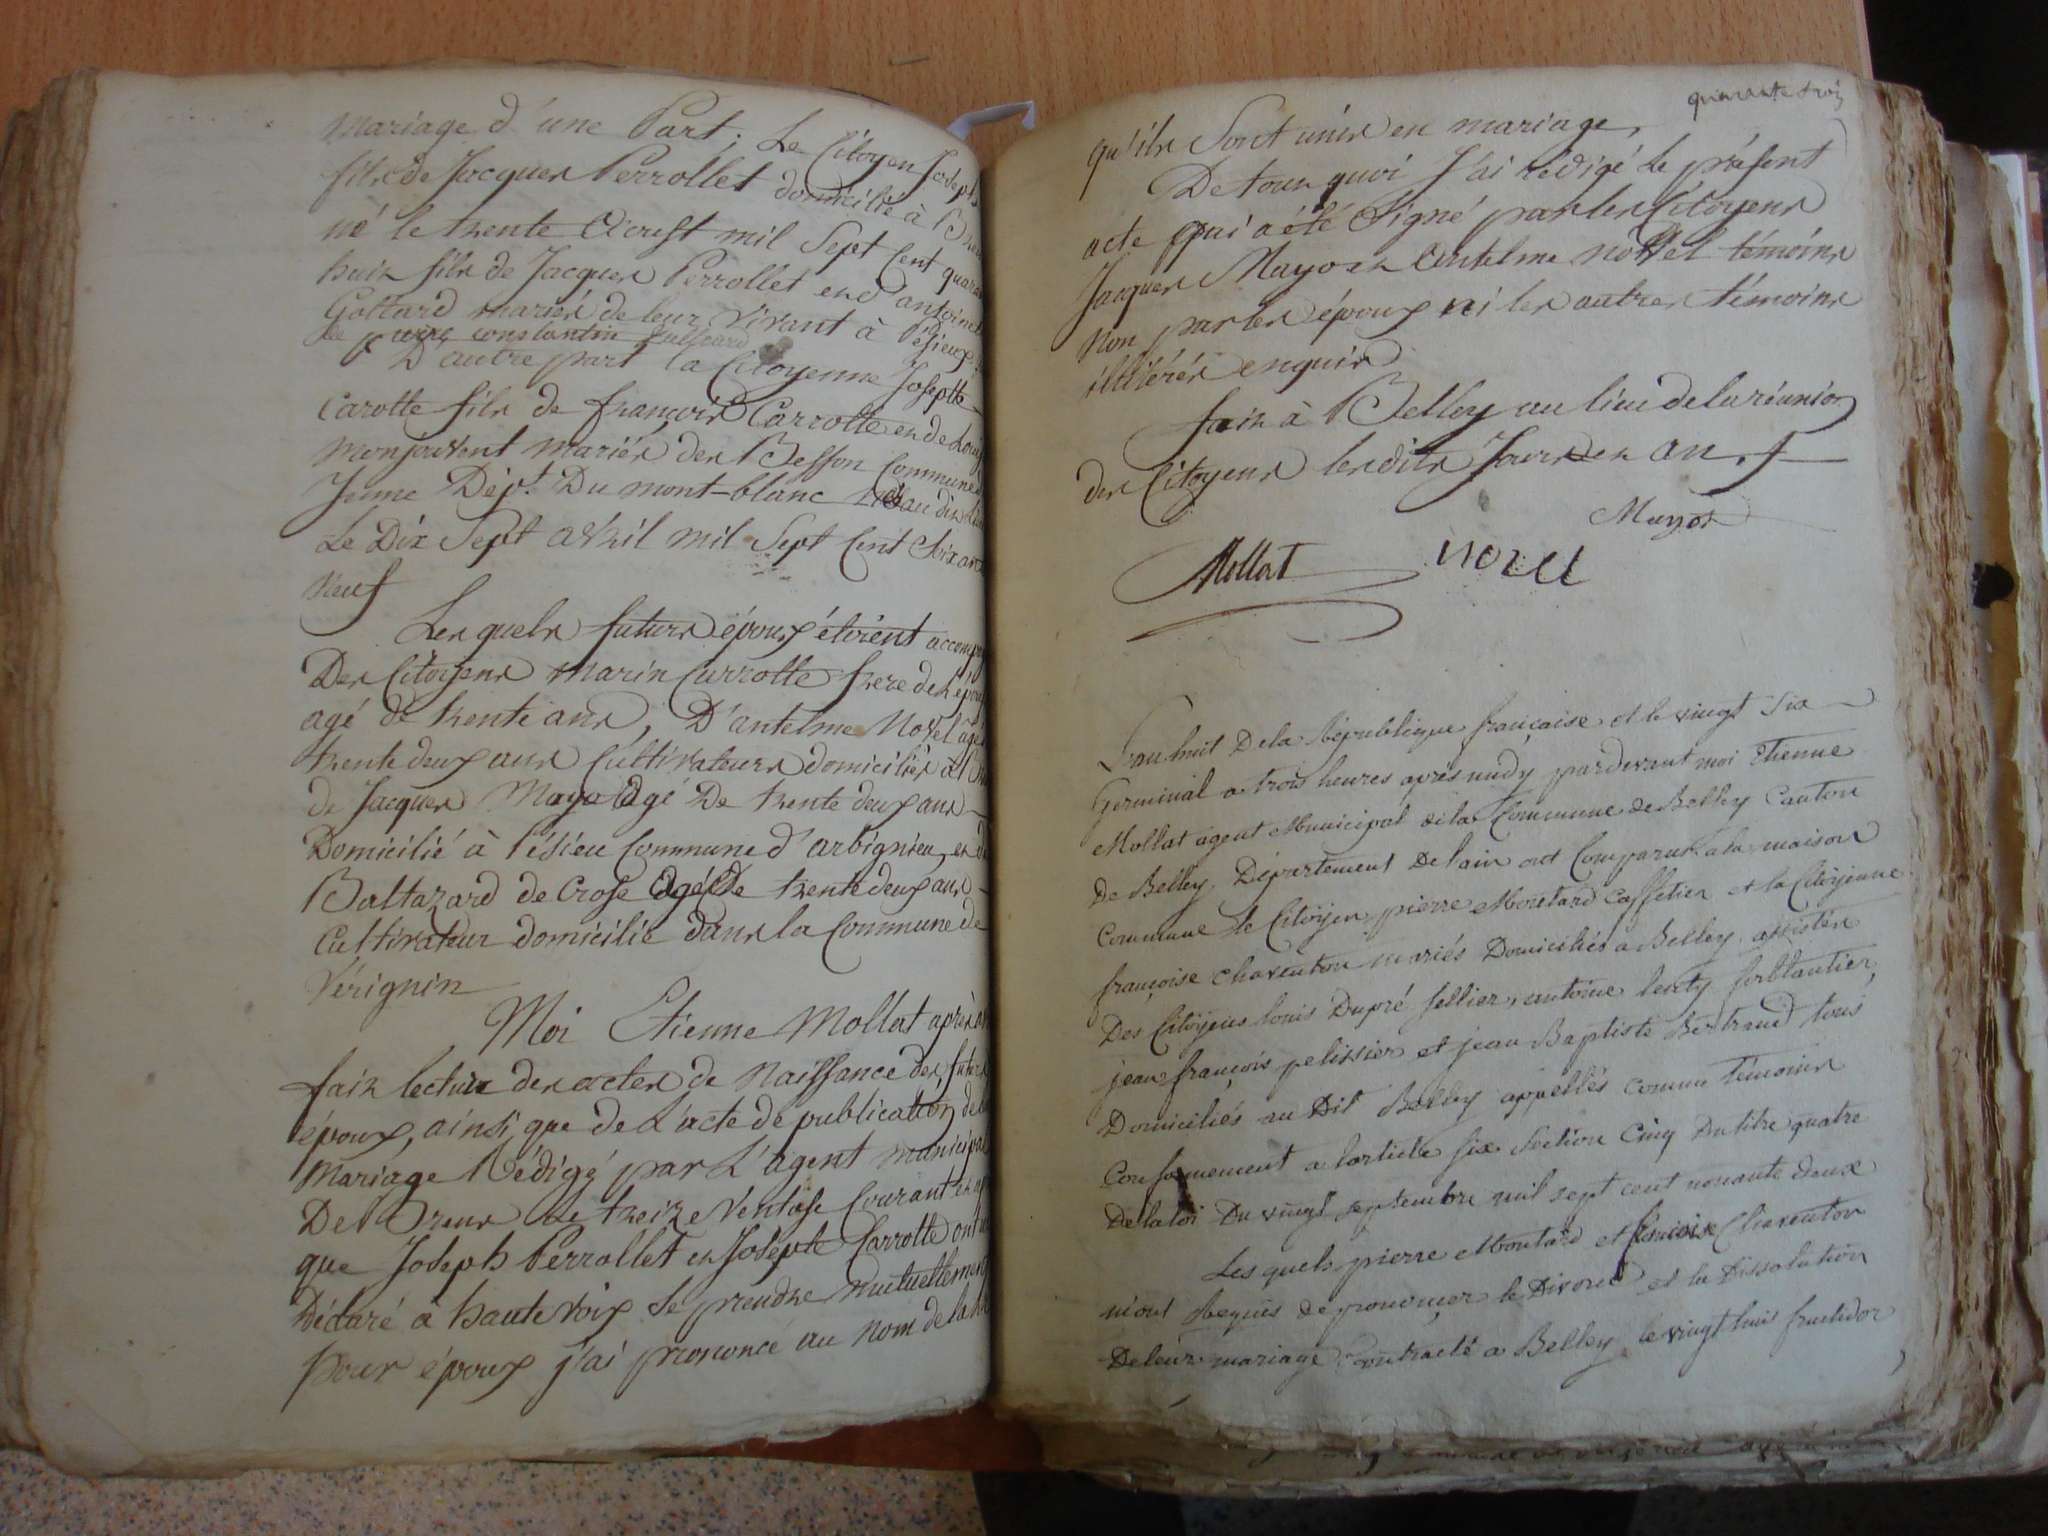 mariage d'une Part; Le Citoyen Joseph
fils de Jacques Perrollet domicilié à
né le trente Aoust mil Sept Cent quara
huit fils de Jacques Perrollet et d'antoine
Gottard mariés de leur vivant à Pésieux
de pierre constantin
D'autre part la Citoyenne Josephte
Carotte fils de françois Carrotte et de Loui
monjouvent mariés des Besson Commune
Jenne Dépt. Du mont-blanc née au dit Lieu
Le Dix Sept avril mil Sept Cent Soixant
neuf
Les quels futurs époux étoient accomp
Des Citoyens marin Currotte frere de l'épou
agé de trente ans, D'antelme Novel agé
trente deux ans Cultivateurs domiciliés à
de Jacques Mayot Agé De trente deux ans
Domicilié à Pésieu Commune d'arbignieu, et d
Baltazard de Crose Agé De trente deux ans
Cultivateur domicilié dans la Commune de
Vérignin
Moi Etienne Mollat après a
fait lecture des actes de Naissance des futurs
époux, ainsi que de L'acte de publication de
Mariage Rédigé par L'agent municipal
De Brens Le treize Ventose Courant et a
que Joseph Perrollet et Josephte Carrotte ont
Déclaré à haute voix Se prendre mutuellement
pour époux j'ai prononcé au nom de la
quarante trois
qu'ils Sont unis en mariage,
De tous quoi J'ai rédigé Le présent
acte qui a été Signé par les Citoyens
Jacques Mayot et Antelme Novel témoins
Non par les époux ni les autres témoins
illitérés enquis
fait à Belley au lieu de la réunion
des Citoyens lesdits Jour et an
Mayot
Mollat novel
L'an huit De la République française et le vingt Six
Germinal a trois heures après midy pardevant moi Etienne
Mollat agent Municipal de la Commune de Belley Canton
De Belley, Département De lain ont Comparus a la maison
Commune le Citoyen pierre Moutard Caffetier et la Citoyenne
françoise Charenton mariés Domiciliés a Belley, assistés
Des Citoyens louis Dupré Sellier, antoine lenty ferblantier,
jean françois pelissier et jean Baptiste Bertrand tous
Domiciliés au Dit Belley appellés comme témoins
Conformement a larticle six Section Cinq Du titre quatre
De la loi Du vingt Septembre mil sept cent nonante deux
Les quels pierre Moutard et françoise Charenton
m'ont Requis de prononcer le Divorce et la Dissolution
De leur mariage Contracté a Belley le vingt huit fructidor